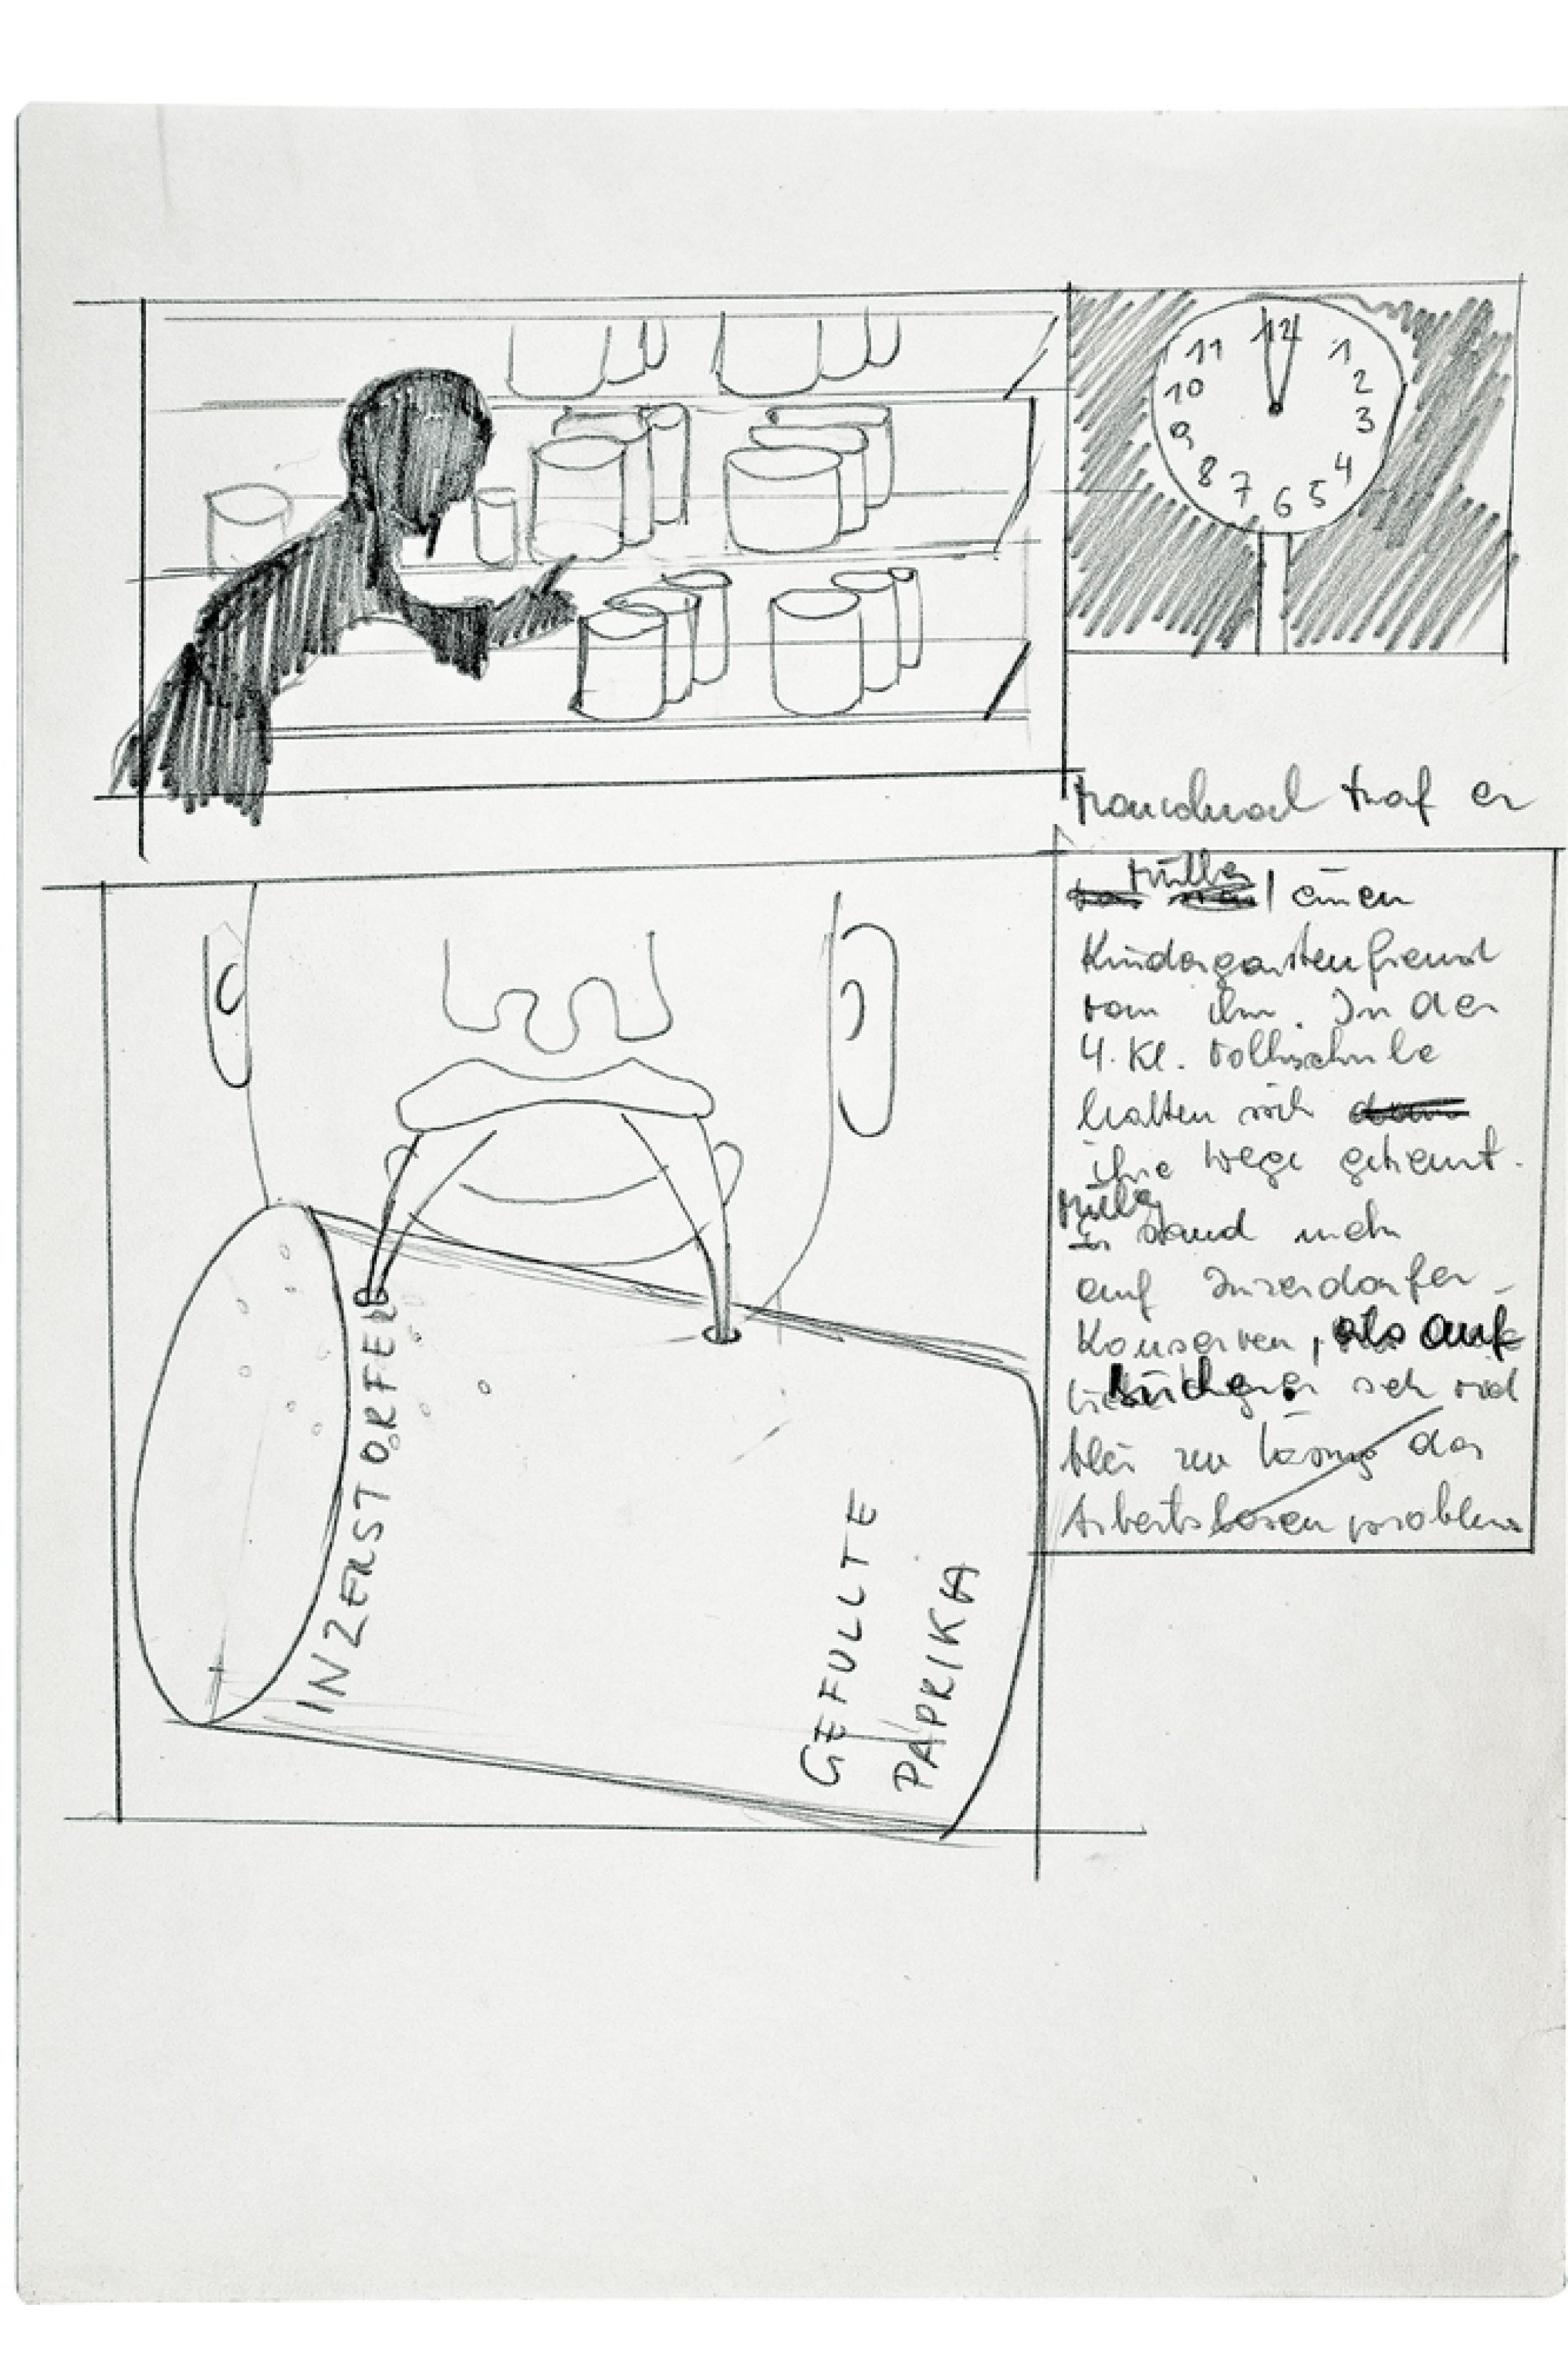 12
11 1
10 2
9 3
8 4
7 6 5
Manchmal traf er
Müller einen
Kindergartenfreund
von ihm. In der
4. Kl. Volksschule
hatten sich
ihre Wege getrennt.
Müller
stand mehr
auf Inzersdorfer-
Konserven, als auf
Bücher
zur Lösung des
Arbeitslosenproblems
INZERSTORFER
GEFULLTE
PAPRIKA